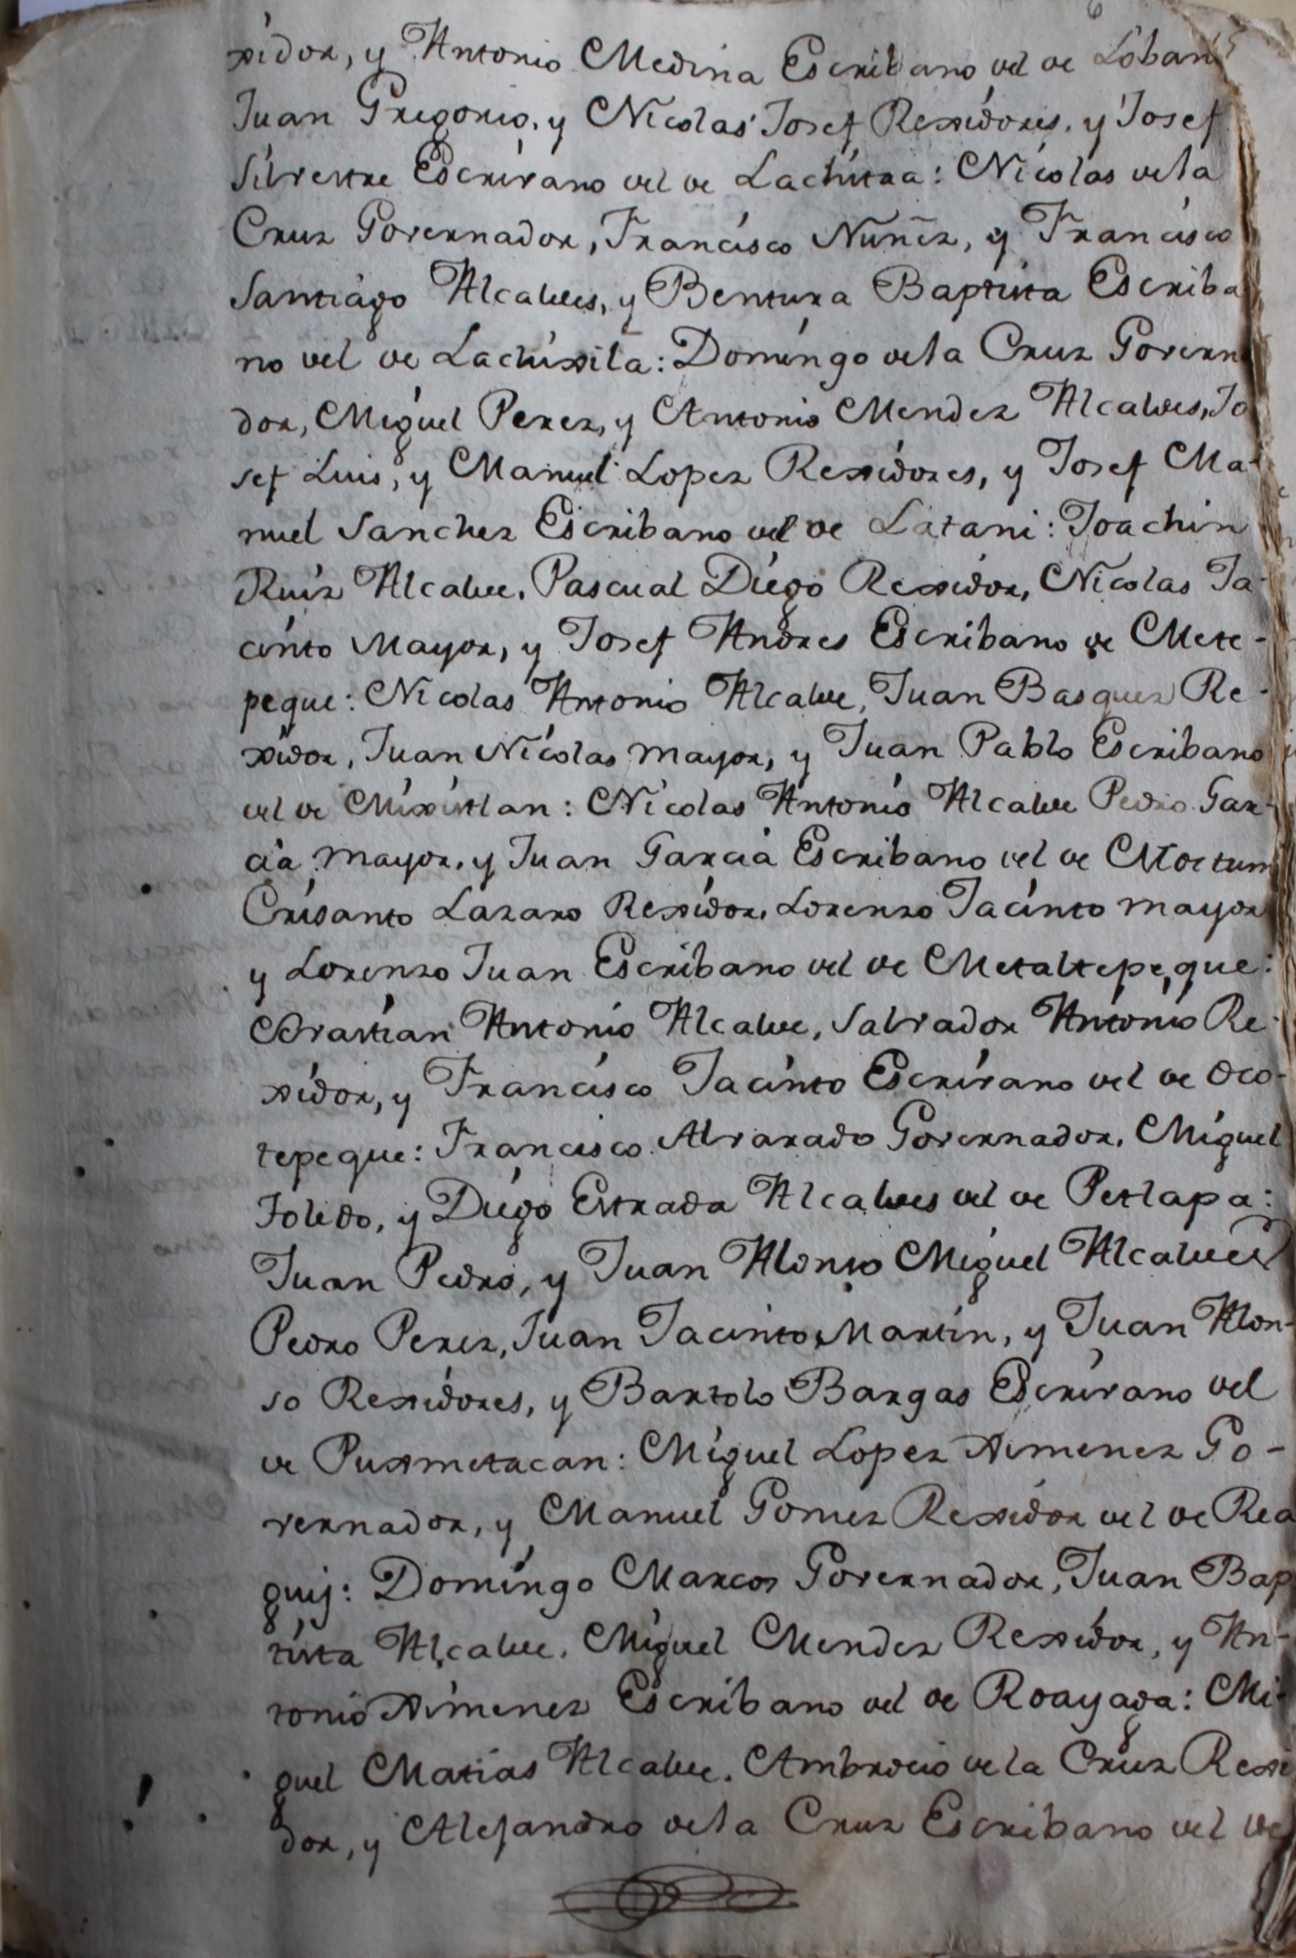 xidor, y Antonio Medina Escribano del de Lobani
Juan Gregorio, y Nicolas Josef Rexidores, y Josef
Silvestre Escrivano del de Lachitaa: Nicolas dela
Cruz Governador, Francisco Nuñez, y Francisco
Santiago Alcaldes, y Bentura Baptista Escriba
no del de Lachixila: Domingo dela Cruz Governa
dor, Miguel Perez, y Antonio Mendez Alcaldes, Jo
sef Luis, y Manuel Lopez Rexidores, y Josef Ma-
nuel Sanchez Escribano del de Latani: Joachin
Ruiz Alcalde, Pascual Diego Rexidor, Nicolas Ja-
cinto Mayor, y Josef Andres Escribano de Mete-
peque: Nicolas Antonio Alcalde, Juan Basquez Re-
xidor, Juan Nicolas mayor, y Juan Pablo Escribano
del de Mixistlan: Nicolas Antonio Alcalde Pedro Gar-
cia mayor, y Juan Garcia Escribano del de Moctum
Crisanto Lazaro Rexidor, Lorenzo Jacinto mayor
y Lorenzo Juan Escribano del de Metaltepeque:
Sevastian Antonio Alcalde, Salvador Antonio Re-
xidor, y Francisco Jacinto Escrivano del de Oco-
tepeque: Francisco Alvarado Governador, Miguel
Toledo, y Diego Estrada Alcaldes del de Petlapa:
Juan Pedro, y Juan Alonso Miguel Alcaldes
Pedro Perez, Juan Jacinto Martin, y Juan Alon-
so Rexidores, y Bartolo Bargas Escrivano del
de Puxmetacan: Miguel Lopez Ximenez Go-
vernador, y Manuel Gomez Rexidor del de Rea
guij: Domingo Marcos Governador, Juan Bap
tista Alcalde, Miguel Mendez Rexidor, y An-
tonio Ximenez Escribano del de Roayaga: Mi-
guel Matias Alcalde, Ambrocio dela Cruz Rexi
dor, y Alejandro dela Cruz Escribano del de